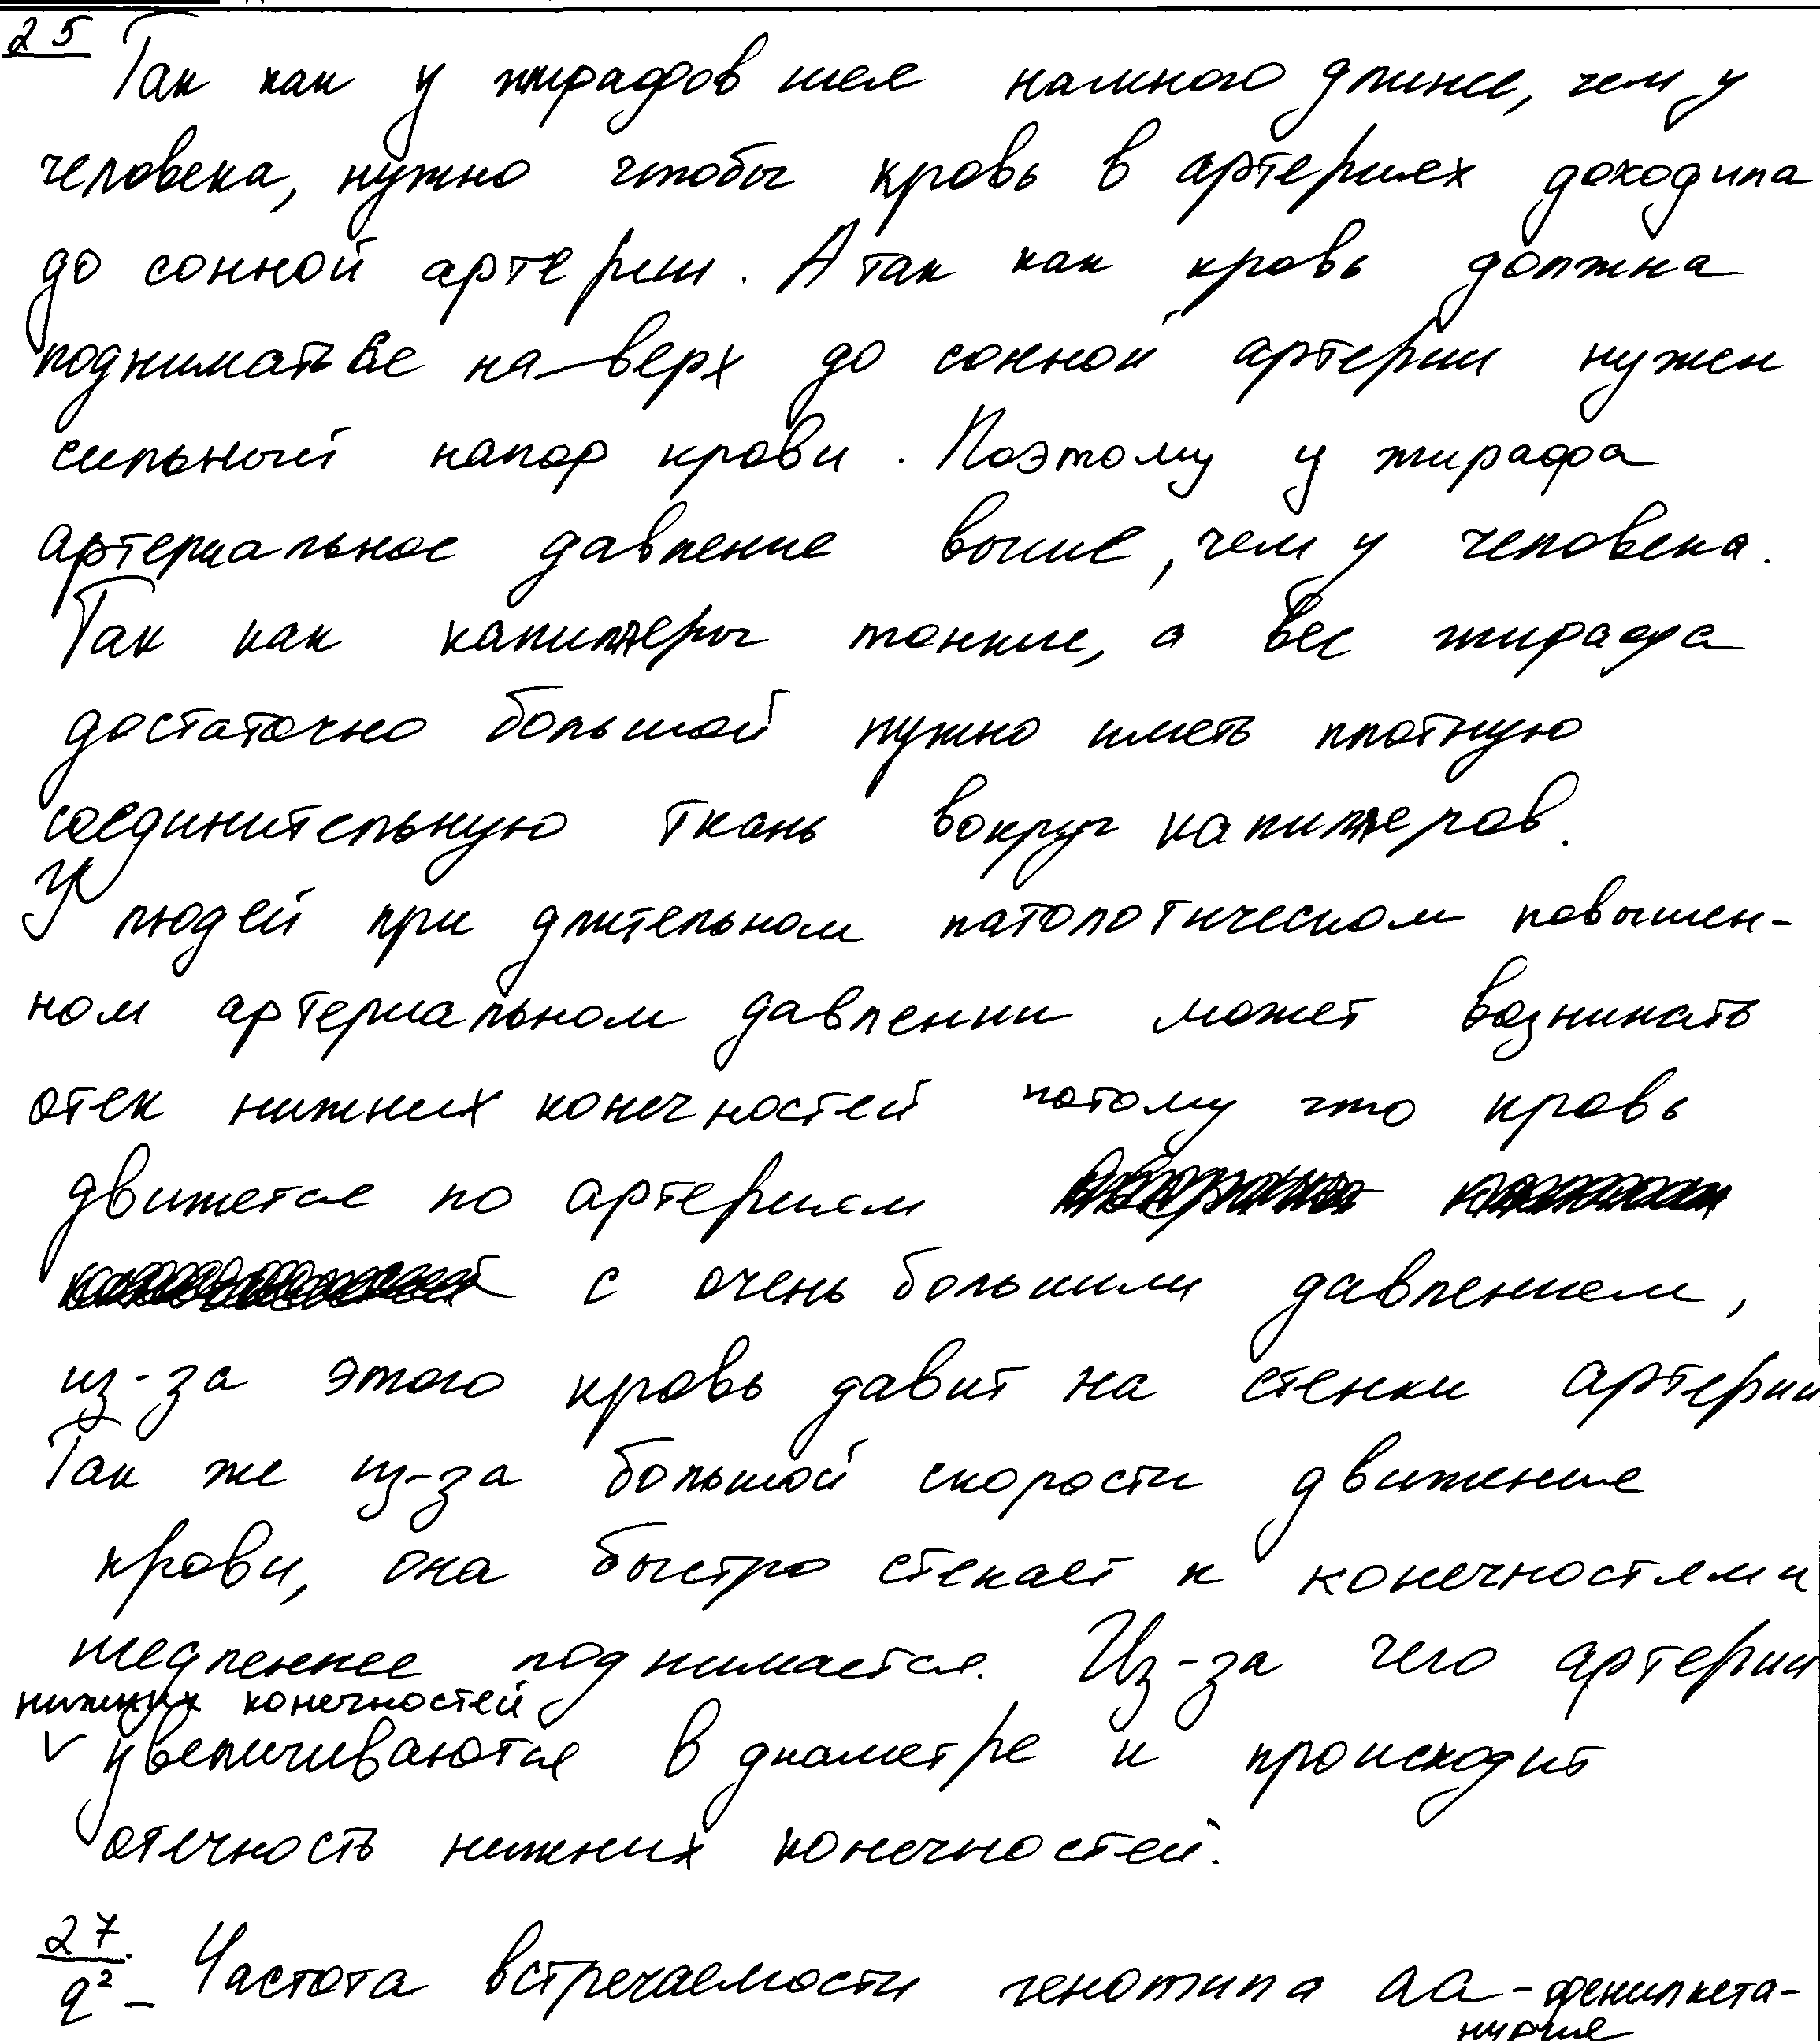 25
Так как у жирафов шея намного длинее, чем у
человека, нужно чтобы кровь в артериях доходила
до сонной артерии. А так как кровь должна
подниматься на верх до сонной артерии нужен
сильный напор крови. Поэтому у жирафа
артериальное давление выше, чем у человека.
Так как капиляры тонкие, а вес жирафа
достаточно большой нужно иметь плотную
соединительную ткань вокруг капиляров.
У людей при длительном патологическом повышен-
ном артериальном давлении может возникать
отек нижних конечностей потому что кровь
движется по артериям
с очень большим давлением,
из-за этого кровь давит на стенки артерии
Так же из-за большой скорости движения
крови, она быстро стекает к конечностям и
медленнее поднимается. Из-за чего артерии
нижних конечностей
V увеличиваются в диаметре и происходит
отечность нижних конечностей.
27.
q² – Частота встречаемости генотипа аа - фенилкета-
нурия